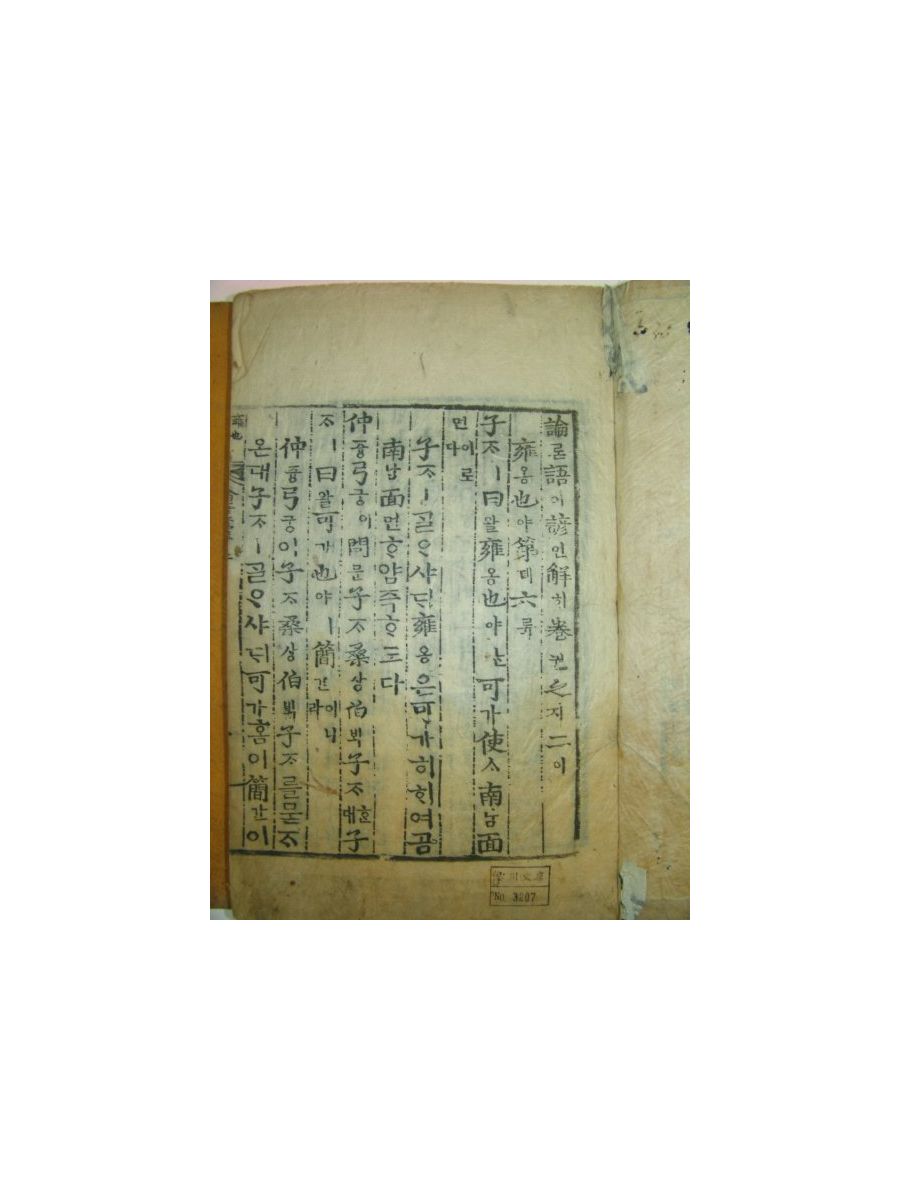 論론語어諺언解ᄒᆡ卷권之지二이
雍옹也야第뎨六륙
子ᄌᆞㅣ曰왈雍옹也야ᄂᆞᆫ可가使ᄉᆞ南남面
면이로다
子ᄌᆞㅣᄀᆞᆯᄋᆞ샤ᄃᆡ雍옹은可가히ᄒᆞ여곰
南남面면ᄒᆞ얌즉ᄒᆞ도다
仲듕弓궁이問문子ᄌᆞ桑상伯ᄇᆡᆨ子ᄌᆞᄒᆞᆫ대子
ᄌᆞㅣ曰왈可가也야ㅣ簡간이니라
仲듕弓궁이子ᄌᆞ桑상伯ᄇᆡᆨ子ᄌᆞ를묻ᄌᆞ
온대子ᄌᆞㅣᄀᆞᆯᄋᆞ샤ᄃᆡ可가홈이簡간이
雍也
No 3207